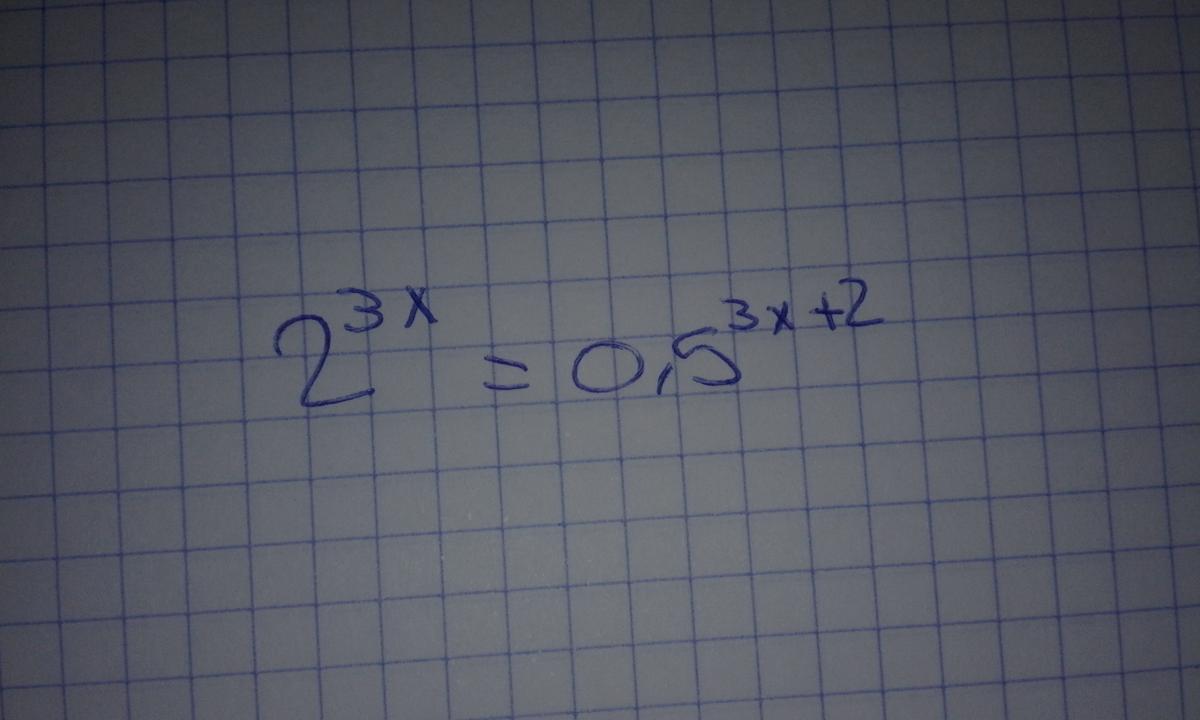 2^{3x} = 0,5^{3x+2}